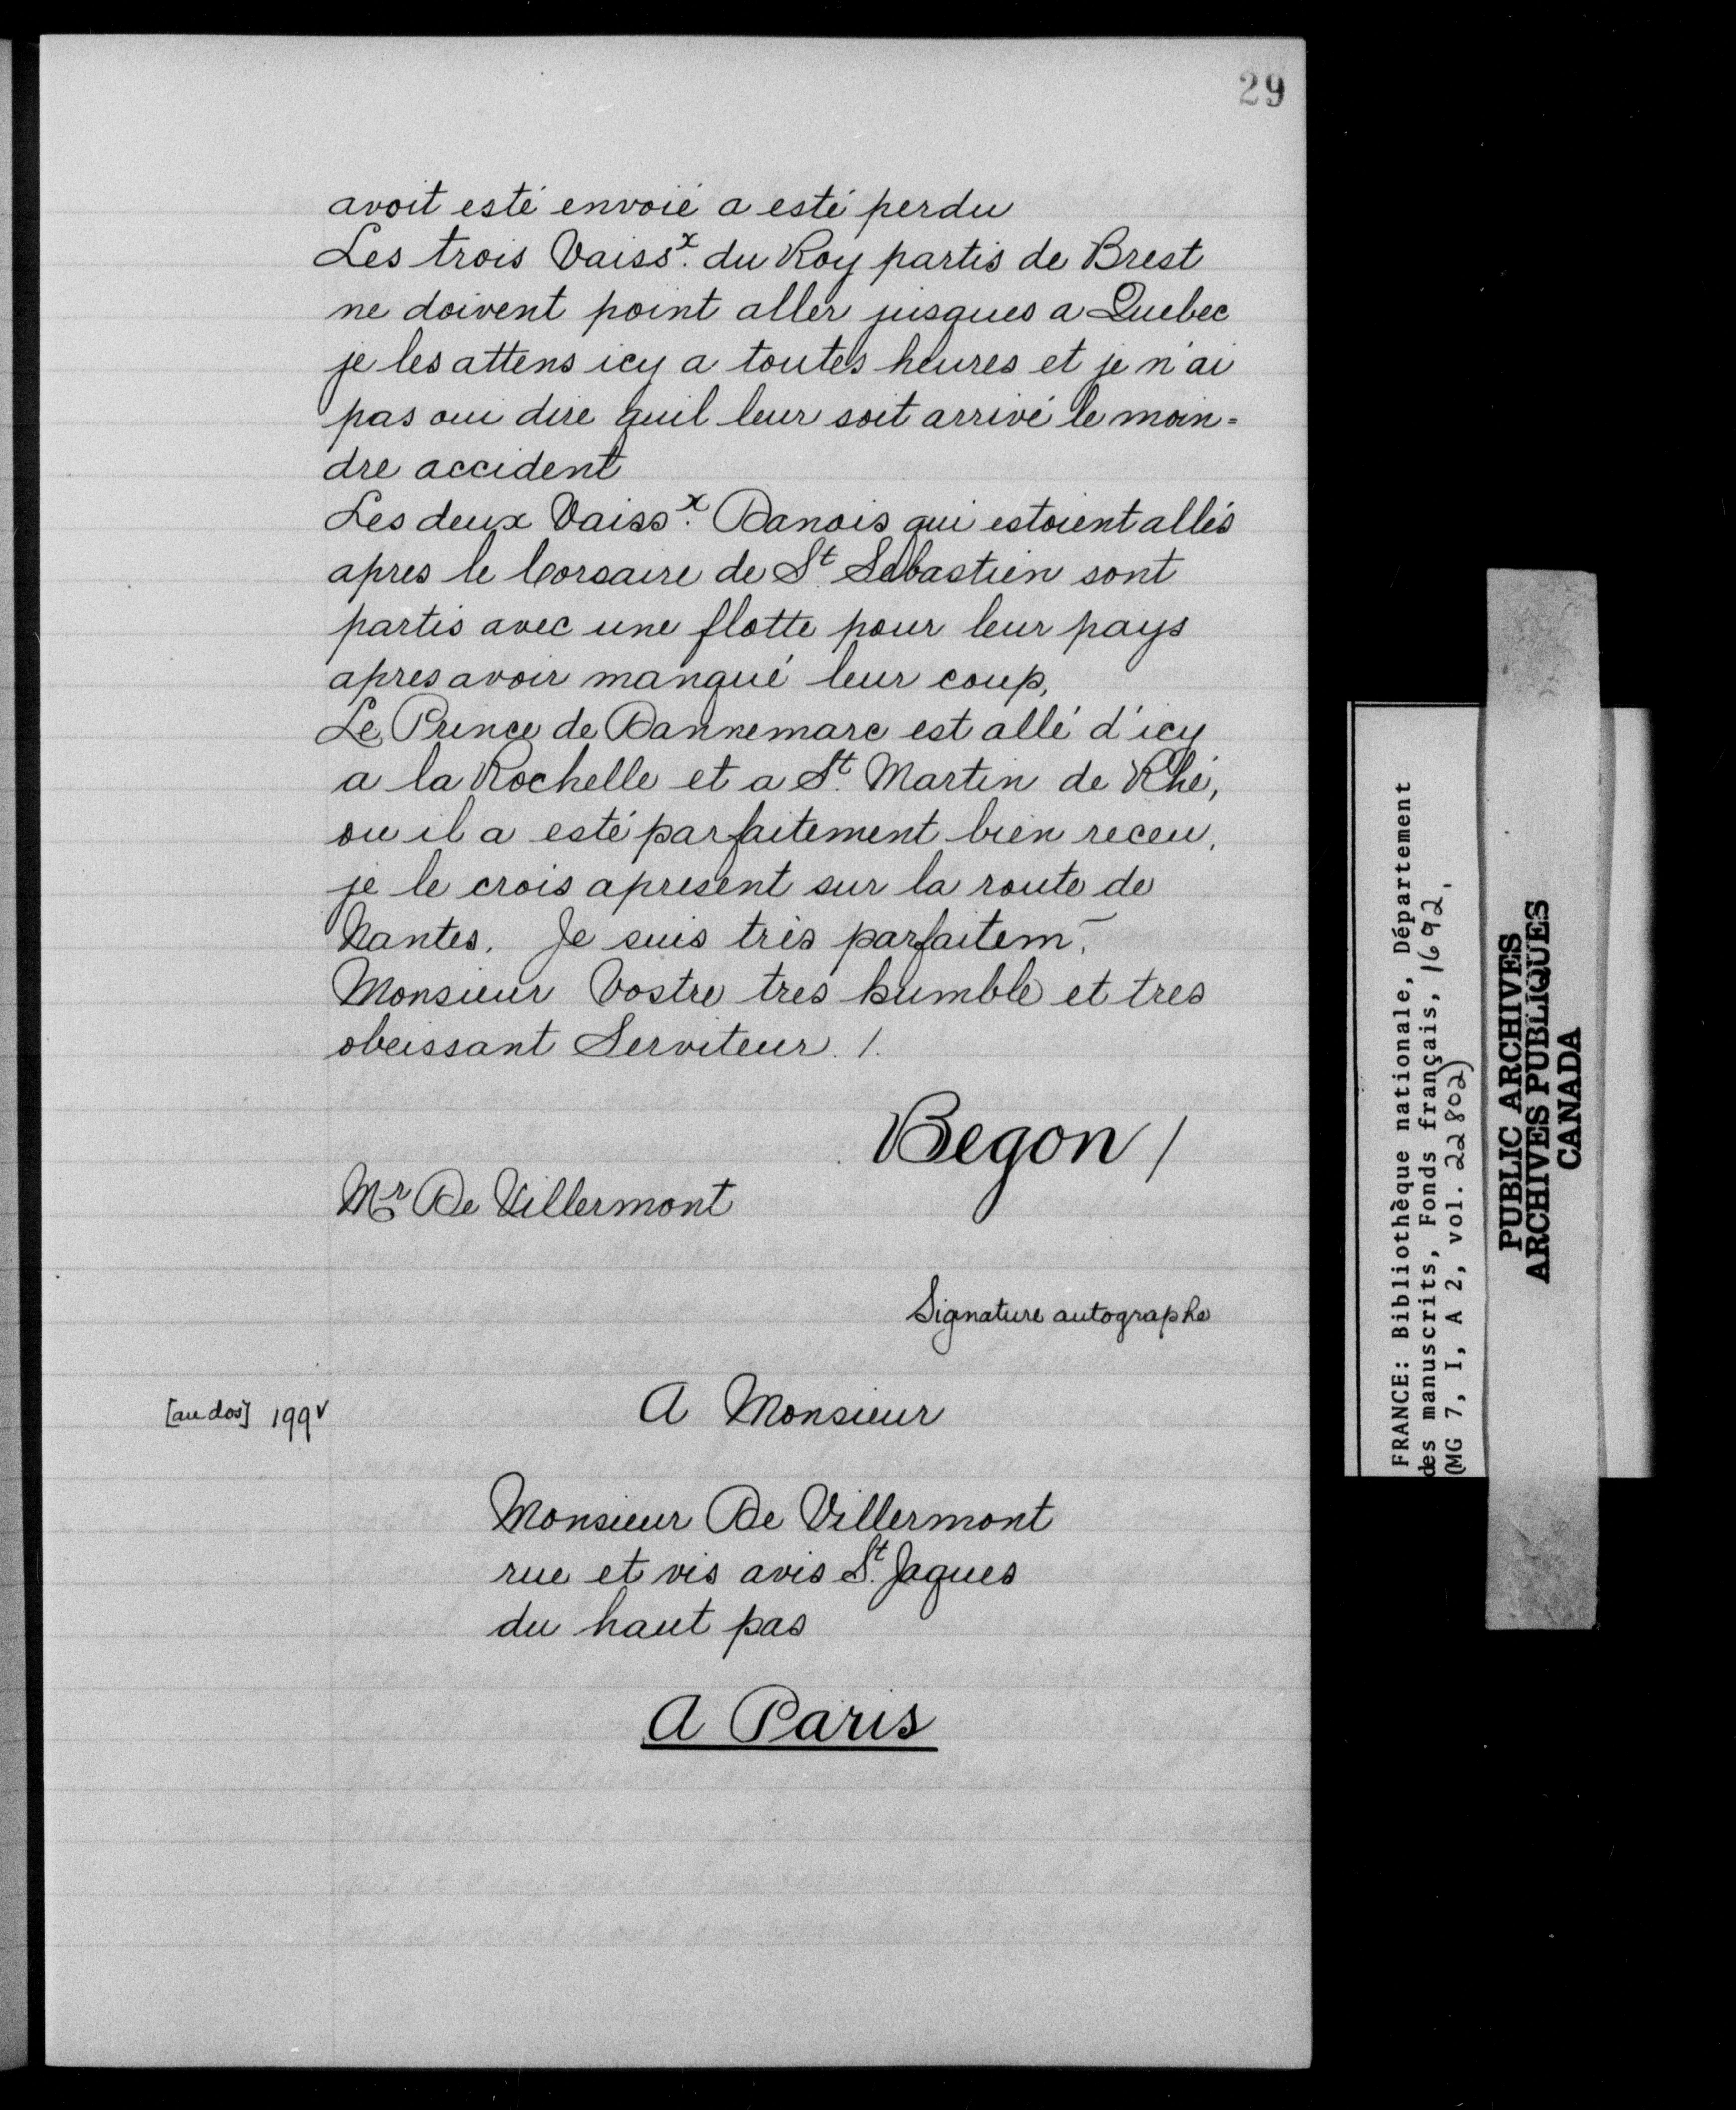 29
avoit esté envoié a esté perdu
Les trois Vaissx. du Roy partis de Brest
ne doivent point aller jusques a Quebec
je les attens icy a toutes heures et je n'ai
pas oui dire quil leur soit arrivé le moin=
dre accident
Les deux Vaissx. Danois qui estoient allés
apres le Corsaire de St. Sebastien sont
partis avec une flotte pour leur pays
apres avoir manqué leur coup,
Le Prince de Dannemarc est allé d'icy
a la Rochelle et a St. Martin de Rhé,
ou il a esté parfaitement bien receu,
je le crois apresent sur la route de
Nantes. Je suis très parfaitem̄.
Monsieur Vostre tres humble et tres
obeissant Serviteur. /.
Begon /
Mr De Villermont
Signature autographe
[au dos] 199v
A Monsieur
Monsieur De Villermont
rue et vis avis St. Jaques
du haut pas
A Paris
FRANCE: Bibliothèque nationale, Département
des manuscrits, Fonds français, 1692.
(MG 7, I, A 2, vol. 22802)
PUBLIC ARCHIVES
ARCHIVES PUBLIQUES
CANADA